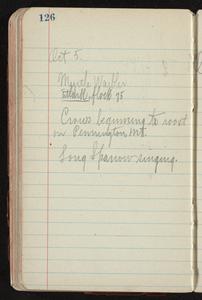 126
Oct 5.
Myrtle Warbler
flock 75
Crows beginning to roost
on Pennington Mt.
Song Sparrow singing.